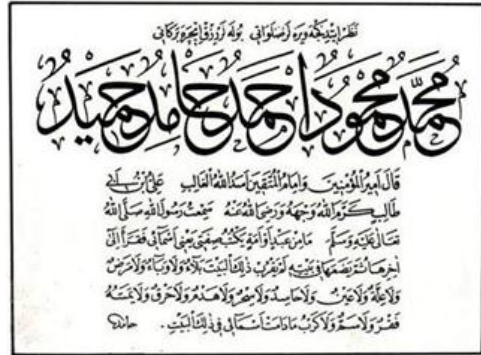 نظر ايتدكجه ويره لر صلواتى بوله لر رزق ايچره بركاتى
مُحَمَّد مَحْمُود اَحْمَد حَامِد حَمِيد
قَالَ اَمِيرُ الْمُؤْمِنِينَ وَاِمَامُ الْمُتَّقِينَ اَسَدُ اللهِ الْغَالِبِ عَلِىُّ بْنُ اَبِى
طَالِبٍ كَرَّمَ اللهُ وَجْهَهُ وَرَضِىَ اللهُ عَنْهُ سَمِعْتُ رَسُولَ اللهِ صَلَّى اللهُ
تَعَالَى عَلَيْهِ وَسَلَّمَ مَا مِنْ عَبْدٍ اَوْ اَمَةٍ يَكْتُبُ صِفَتِى يَعْنِى اَسْمَائِى فَقَرَأَ اِلَى
اٰخِرِهَا ثُمَّ يَضَعُهَا فِى بَيْتِهِ لَمْ يَقْرُبْ ذٰلِكَ الْبَيْتَ بَلَاءٌ وَلَا وَبَاءٌ وَلَا مَرَضٌ
وَلَا عِلَّةٌ وَلَا عَيْنٌ وَلَا حَاسِدٌ وَلَا سِحْرٌ وَلَا هَدْمٌ وَلَا حَرْقٌ وَلَا يَمَسُّهُ
فَقْرٌ وَلَا هَمٌّ وَلَا كَرْبٌ مَا دَامَتْ اَسْمَائِى فِى ذٰلِكَ الْبَيْتِ . حامد